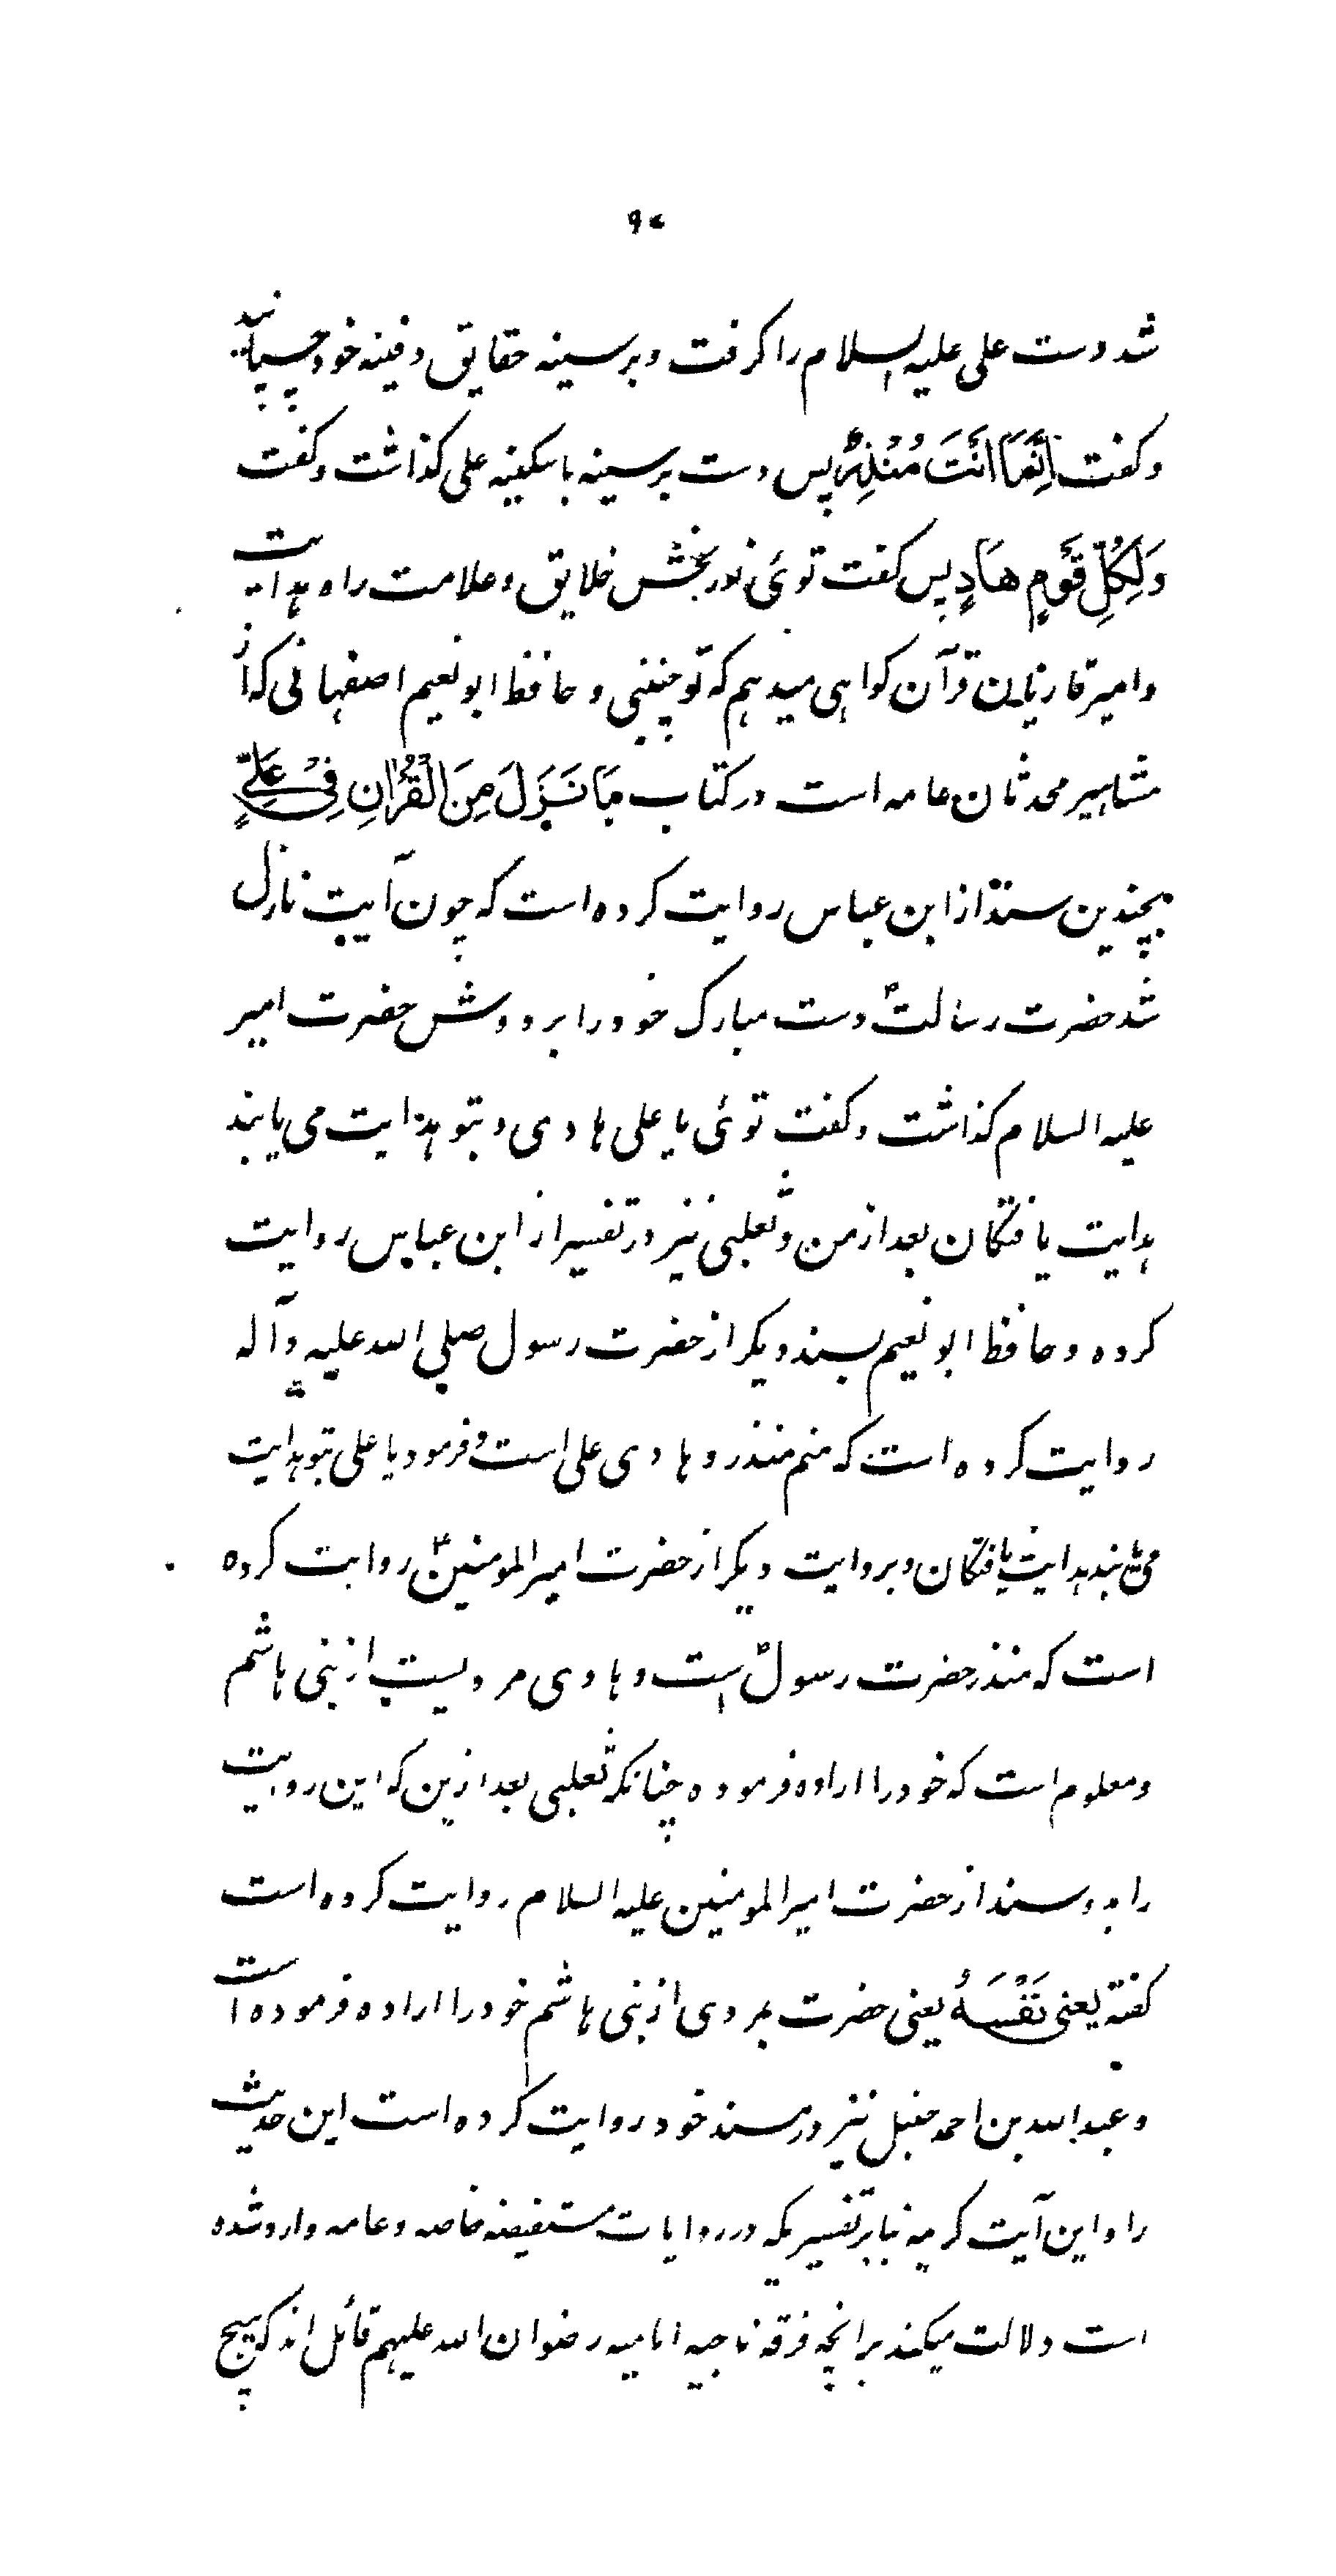 ۹۰
شد دست علی علیه السلام را گرفت و بر سینه حقایق دفینه خود چسپانید
و گفت اِنَّمَا اَنْتَ مُنْذِرٌ پس دست بر سینه باسکینه علی گذاشت و گفت
وَلِکُلِّ قَوْمٍ هَادٍ پس گفت توئی نور بخش خلایق و علامت راه هدایت
و امیر قاریان قرآن گواهی میدهم که تو چنینی و حافظ ابو نعیم اصفهانی که از
مشاهیر محدثان عامه است در کتاب مَا نَزَلَ مِنَ الْقُرْاٰنِ فِیْ عَلِیٍّ
بچندین سند از ابن عباس روایت کرده است که چون آیت نازل
شد حضرت رسالتؐ دست مبارک خود را بر دوش حضرت امیر
علیه السلام گذاشت و گفت توئی یا علی هادی و بتو هدایت می یابند
هدایت یافتگان بعد از من و ثعلبی نیز در تفسیر از ابن عباس روایت
کرده و حافظ ابو نعیم بسند دیگر از حضرت رسول صلی الله علیه و آله
روایت کرده است که منم منذر و هادی علی است و فرمود یا علی بتو هدایت
می یابند هدایت یافتگان و بروایت دیگر از حضرت امیر المومنینؑ روایت کرده
است که منذر حضرت رسولؐ است و هادی مردیست از بنی هاشم
و معلوم است که خود را اراده فرموده چنانکه ثعلبی بعد ازین که این روایت
را بدو سند از حضرت امیر المومنین علیه السلام روایت کرده است
گفته یعنی نَفْسَهُ یعنی حضرت بمردی از بنی هاشم خود را اراده فرموده است
و عبد الله بن احمد حنبل نیز در مسند خود روایت کرده است این حدیث
را و این آیت کریمه بنا بر تفسیریکه در روایات مستفیضه خاصه و عامه وارد شده
است دلالت میکند بر انچه فرقه ناجیه امامیه رضوان الله علیهم قائل اند که هیچ